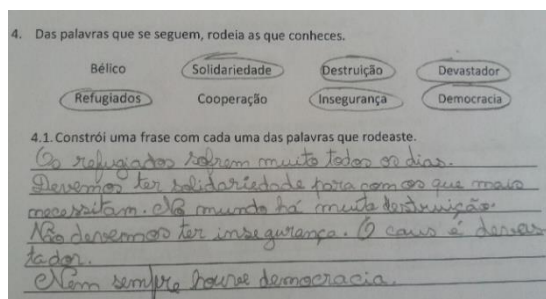 4. Das palavras que se seguem, rodeia as que conheces.
Bélico Solidariedade Destruição Devastador
Refugiados Cooperação Insegurança Democracia
4.1. Constrói uma frase com cada uma das palavras que rodeaste.
Os refugiados sofrem muito todos os dias.
Devemos ter solidariedade para com os que mais
necessitam. No mundo há muita destruição.
Não devemos ter insegurança. O caus é devas
tador.
Nem sempre houve democracia.